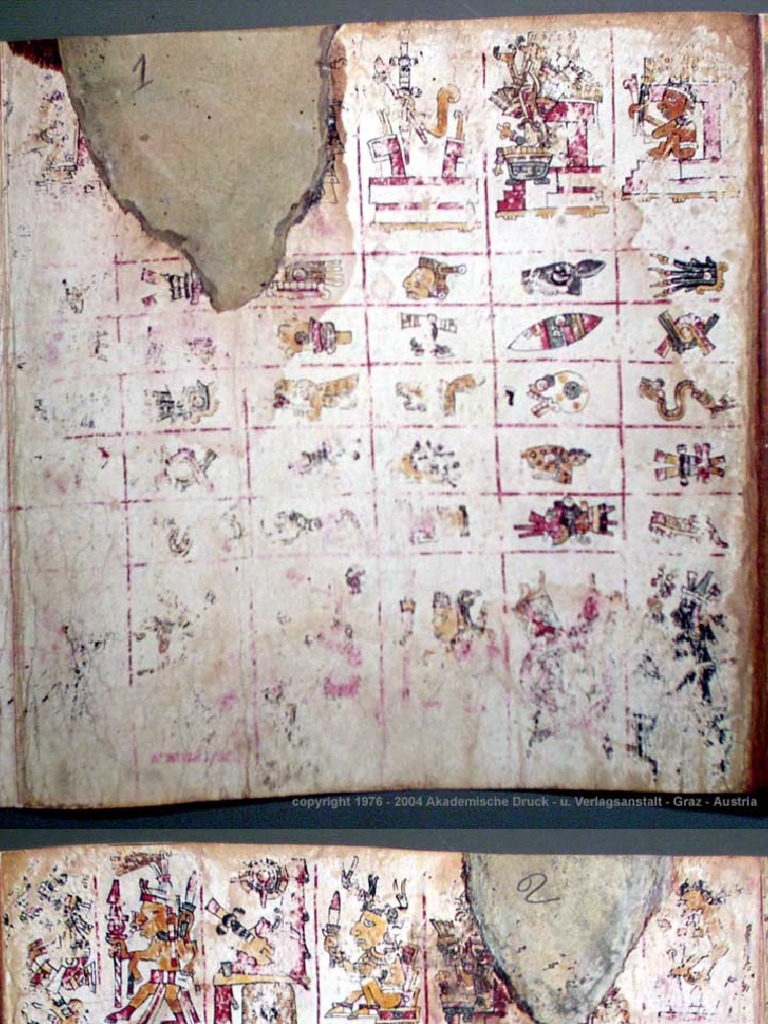 1
copyright 1976 - 2004 Akademische Druck - u. Verlagsanstalt - Graz - Austria
2